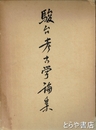 駿台考古学論集
とらや書房